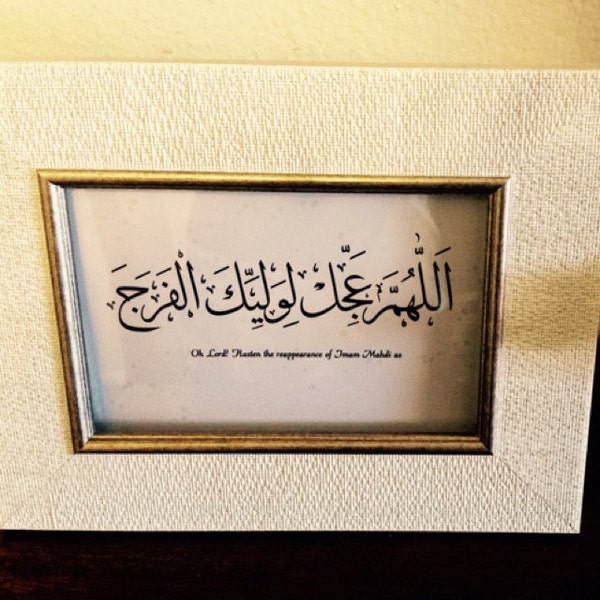 اَللّٰهُمَّ عَجِّلْ لِوَلِيِّكَ الْفَرَجَ
Oh Lord! Hasten the reappearance of Imam Mahdi as